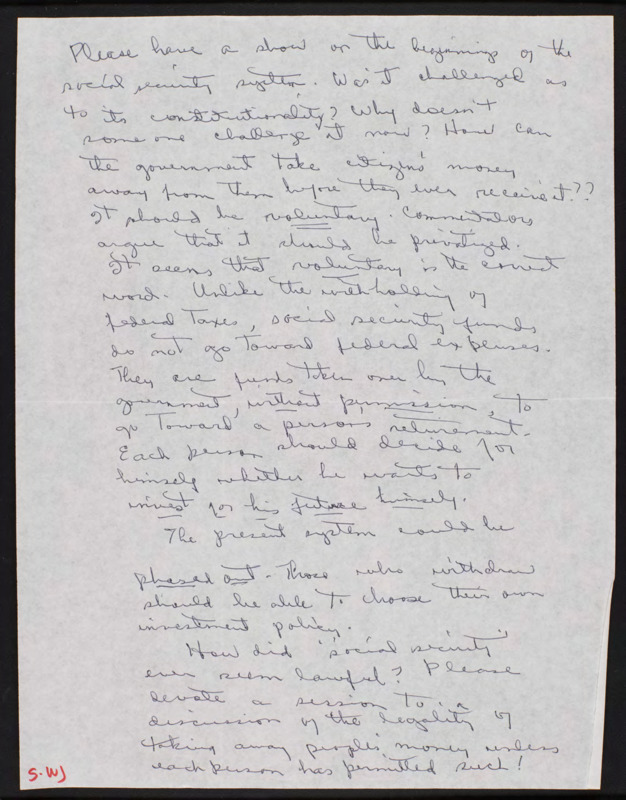 Please have a show on the beginnings of the
social security system. Was it challenged as
to its constitutionality? Why doesn't
some one challenge it now? How can
the government take citizens' money
away from them before they ever receive it??
It should be voluntary. Commentators
argue that it should be privatized.
It seems that voluntary is the correct
word. Unlike the withholding of
federal taxes, social security funds
do not go toward federal expenses.
They are funds taken over by the
government, without permission, to
go toward a persons retirement.
Each person should decide for
himself whether he wants to
invest for his future himself.
The present system could be
phased out. Those who withdraw
should be able to choose their own
investment policy.
How did 'social security'
ever seem lawful? Please
devote a session to a
discussion of the legality of
taking away people's money unless
each person has permitted such!
S. WJ